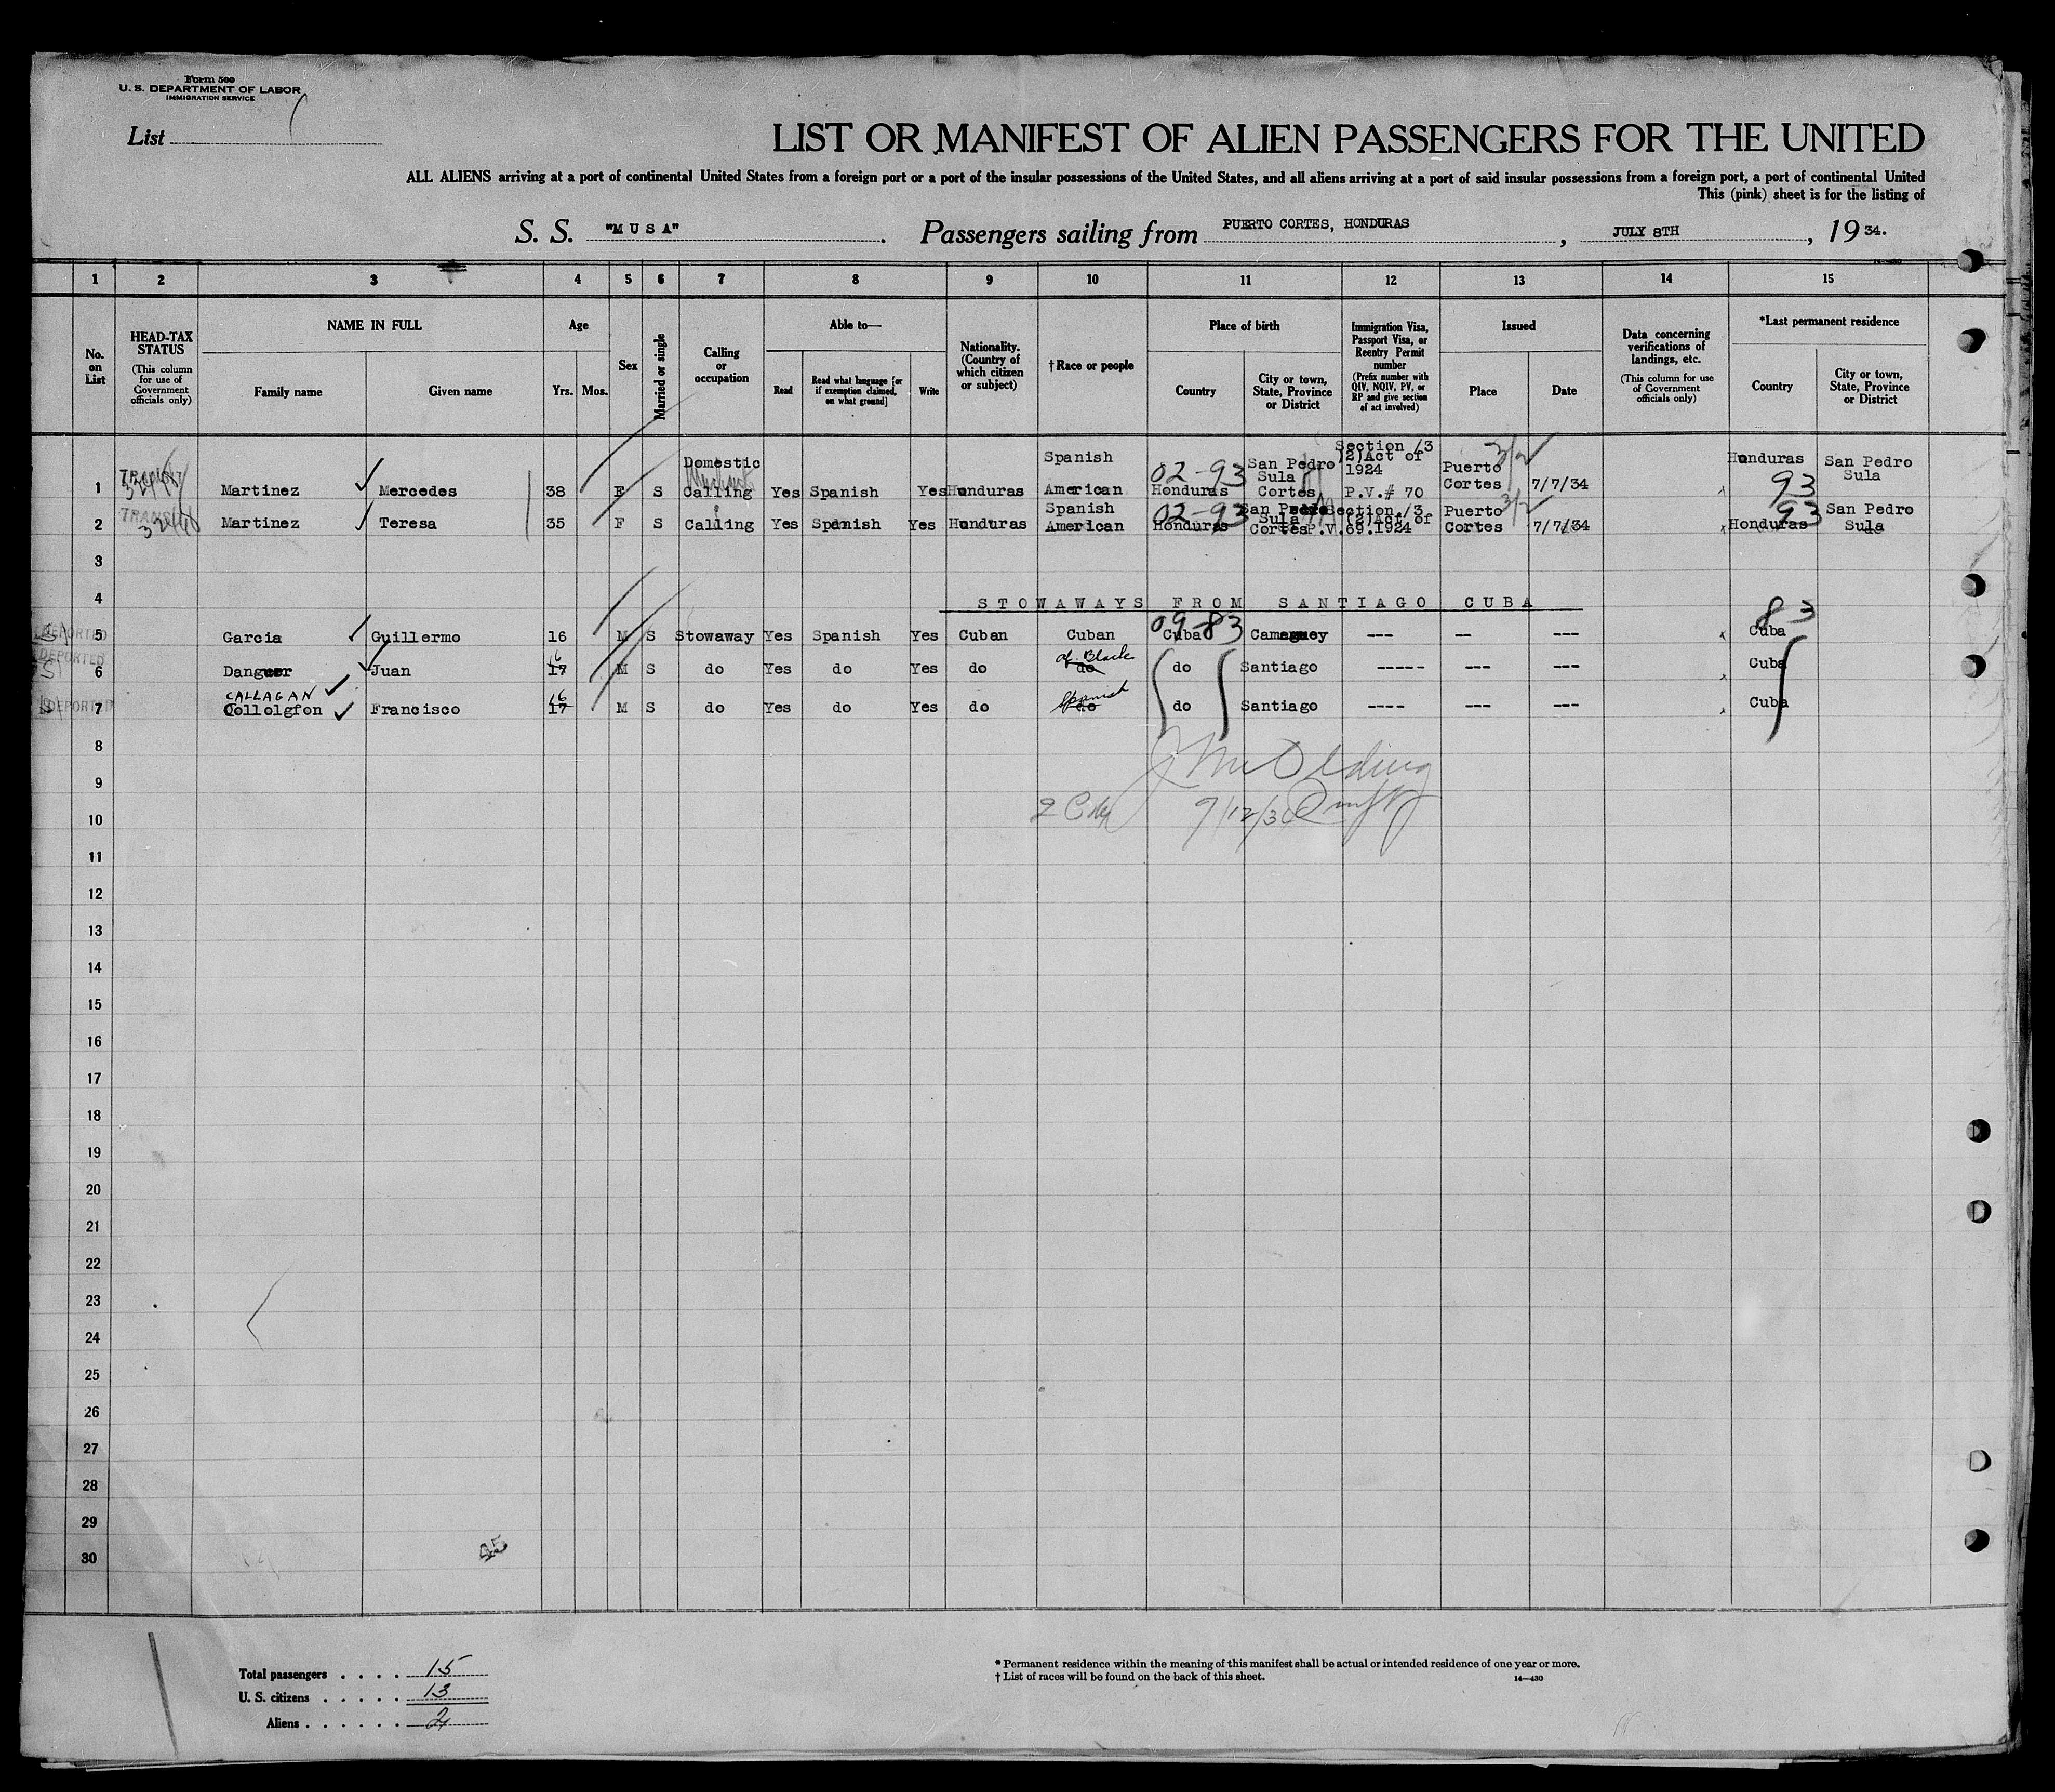 Form 500
U. S. DEPARTMENT OF LABOR
IMMIGRATION SERVICE
List
LIST OR MANIFEST OF ALIEN PASSENGERS FOR THE UNITED
ALL ALIENS arriving at a port of continental United States from a foreign port or a port of the insular possessions of the United States, and all aliens arriving at a port of said insular possessions from a foreign port, a port of continental United
This (pink) sheet is for the listing of
S. S. "M U S A" Passengers sailing from PUERTO CORTES, HONDURAS, JULY 8TH, 19 34.
1 2 3 4 5 6 7 8 9 10 11 12 13 14 15
No. on List
HEAD-TAX STATUS (This column for use of Government officials only)
NAME IN FULL
Family name Given name
Age
Yrs. Mos.
Sex
Married or single
Calling or occupation
Able to—
Read Read what language [or if exemption claimed, on what ground] Write
Nationality. (Country of which citizen or subject)
† Race or people
Place of birth
Country City or town, State, Province or District
Immigration Visa, Passport Visa, or Reentry Permit number (Prefix number with QIV, NQIV, PV, or RP and give section of act involved)
Issued
Place Date
Data concerning verifications of landings, etc. (This column for use of Government officials only)
*Last permanent residence
Country City or town, State, Province or District
1 TRANSIT Martinez Mercedes 38 F S Domestic Calling Yes Spanish Yes Honduras Spanish American 02-93 Honduras San Pedro Sula Cortes Section /3 (2)Act of 1924 P.V.# 70 Puerto Cortes 7/7/34 Honduras 93 San Pedro Sula
2 TRANSIT Martinez Teresa 35 F S Calling Yes Spanish Yes Honduras Spanish American 02-93 Honduras San Pedro Sula Cortes Section /3 (2)Act of 1924 P.V.69. Puerto Cortes 7/7/34 Honduras 93 San Pedro Sula
3
4 STOWAWAYS FROM SANTIAGO CUBA
5 DEPORTED Garcia Guillermo 16 M S Stowaway Yes Spanish Yes Cuban Cuban 09-83 Cuba Camaguey --- -- --- 83 Cuba
6 DEPORTED Juan 16 17 M S do Yes do Yes do af. Black do do Santiago ----- --- --- Cuba
7 DEPORTED CALLAGAN Francisco 16 17 M S do Yes do Yes do Spanish do do Santiago ---- --- --- Cuba
8
9
10
11
12
13
14
15
16
17
18
19
20
21
22
23
24
25
26
27
28
29
30
45
Total passengers . . . . 15
U. S. citizens . . . . . 13
Aliens . . . . . . 2
* Permanent residence within the meaning of this manifest shall be actual or intended residence of one year or more.
† List of races will be found on the back of this sheet.
14—430